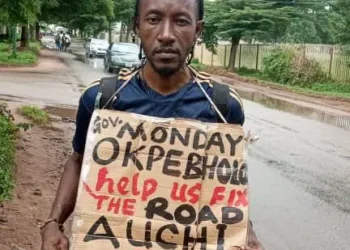 GOV. MONDAY
OKPEBHOLO
help us FIX
THE ROAD
AUCHI